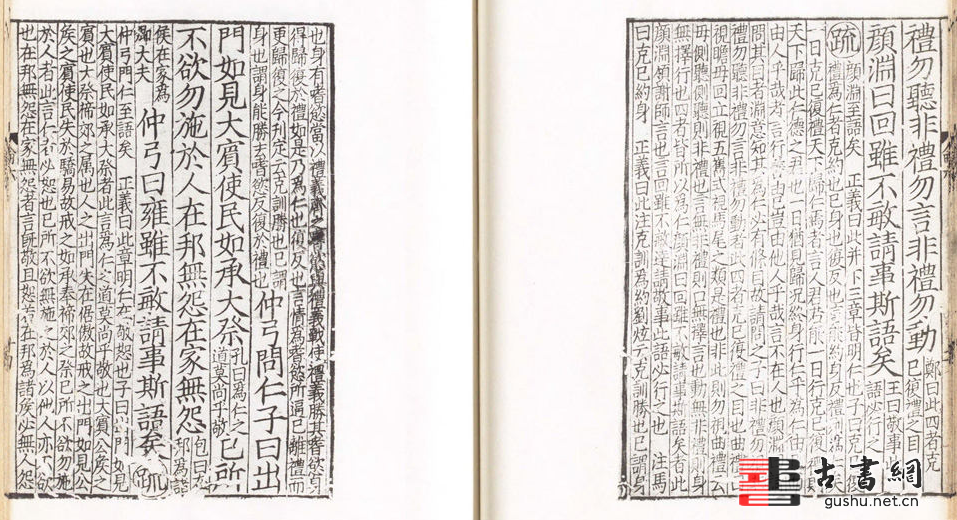 禮勿聽非禮勿言非禮勿動鄭曰此四者克己復禮之目
顏淵曰回雖不敏請事斯語矣王曰敬事此語必行之
疏顏淵至語矣 正義曰此并下三章皆明仁也子曰克己復
禮為仁者克約也己身也復反也言能約身反禮則為仁矣
一日克己復禮天下歸仁焉者言人君若能一日行克己復禮則
天下歸此仁德之君也一日猶見歸況終身行仁乎為仁由己而
由人乎哉者言行善由己豈由他人乎哉言不在人也顏淵曰請
問其目者淵意知其為仁必有條目故請問之子曰非禮勿視非
禮勿聽非禮勿言非禮勿動者此四者克己復禮之目也曲禮云
視瞻毋回立視五雟式視馬尾之類是禮也非此則勿視曲禮云
毋側聽側聽則非禮也言無非禮則口無擇言也動無非禮則身
無擇行也四者皆所以為仁顏淵曰回雖不敏請事斯語矣者此
顏淵領謝師言也言回雖不敏達請敬事此語必行之也 注馬
曰克己約身 正義曰此注克訓為約劉炫云克訓勝也己謂身
也身有嗜慾當以禮義齊之嗜慾與禮義戰使禮義勝其嗜慾身
得歸復於禮如是乃為仁也復反也言情為嗜慾所逼已離禮而
更歸復之今刊定云克訓勝也己謂
身也謂身能勝去嗜慾反復於禮也 仲弓問仁子曰出
門如見大賓使民如承大祭孔曰為仁之道莫尚乎敬己所
不欲勿施於人在邦無怨在家無怨包曰在邦為諸
侯在家為卿大夫仲弓曰雍雖不敏請事斯語矣疏
仲弓問仁至語矣 正義曰此章明仁在敬恕也子曰出門如見
大賓使民如承大祭者此言為仁之道莫尚乎敬也大賓公侯之
賓也大祭禘郊之屬也人之出門失在倨傲故戒之出門如見公
侯之賓使民失於驕易故戒之如承奉禘郊之祭己所不欲勿施
於人者此言仁者必恕也己所不欲無施之於人以他人亦不欲
也在邦無怨在家無怨者言既敬且恕若在邦為諸侯必無人怨
古書網
gushu.net.cn